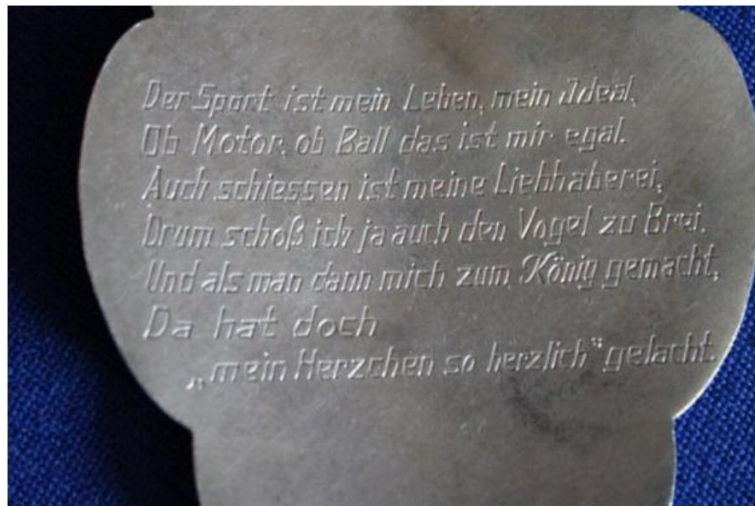 Der Sport ist mein Leben, mein Ideal,
Ob Motor, ob Ball das ist mir egal.
Auch schiessen ist meine Liebhaberei,
Drum schoß ich ja auch den Vogel zu Brei.
Und als man dann mich zum König gemacht,
Da hat doch
„mein Herzchen so herzlich“ gelacht.